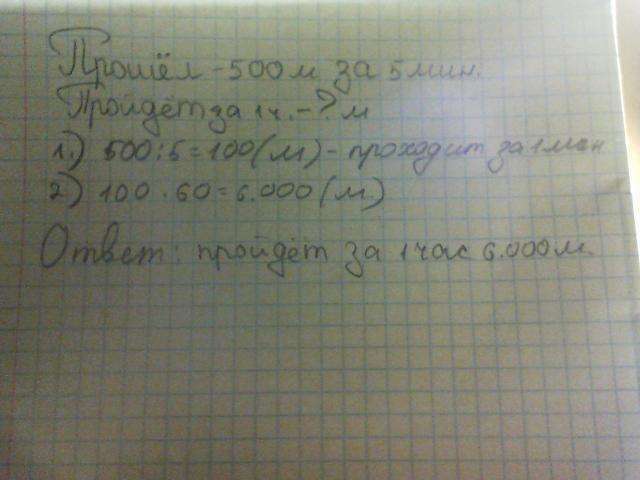 Прошёл - 500 м за 5 мин.
Пройдёт за 1 ч. - ? м
1.) 500 : 5 = 100 (м) - проходит за 1 мин
2) 100 · 60 = 6.000 (м)
Ответ: пройдёт за 1 час 6.000 м.